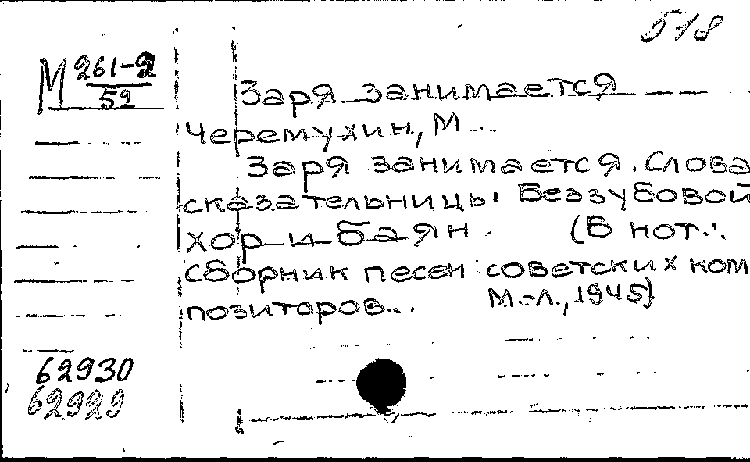 518
М 261-2
52
Заря занимается
Черемухин, М...
Заря занимается. Слова
сказательницы Беззубовой
хор и баян. (В нот.:
сборник песен советских ком
позиторов... М.-Л., 1945)
62930
62929